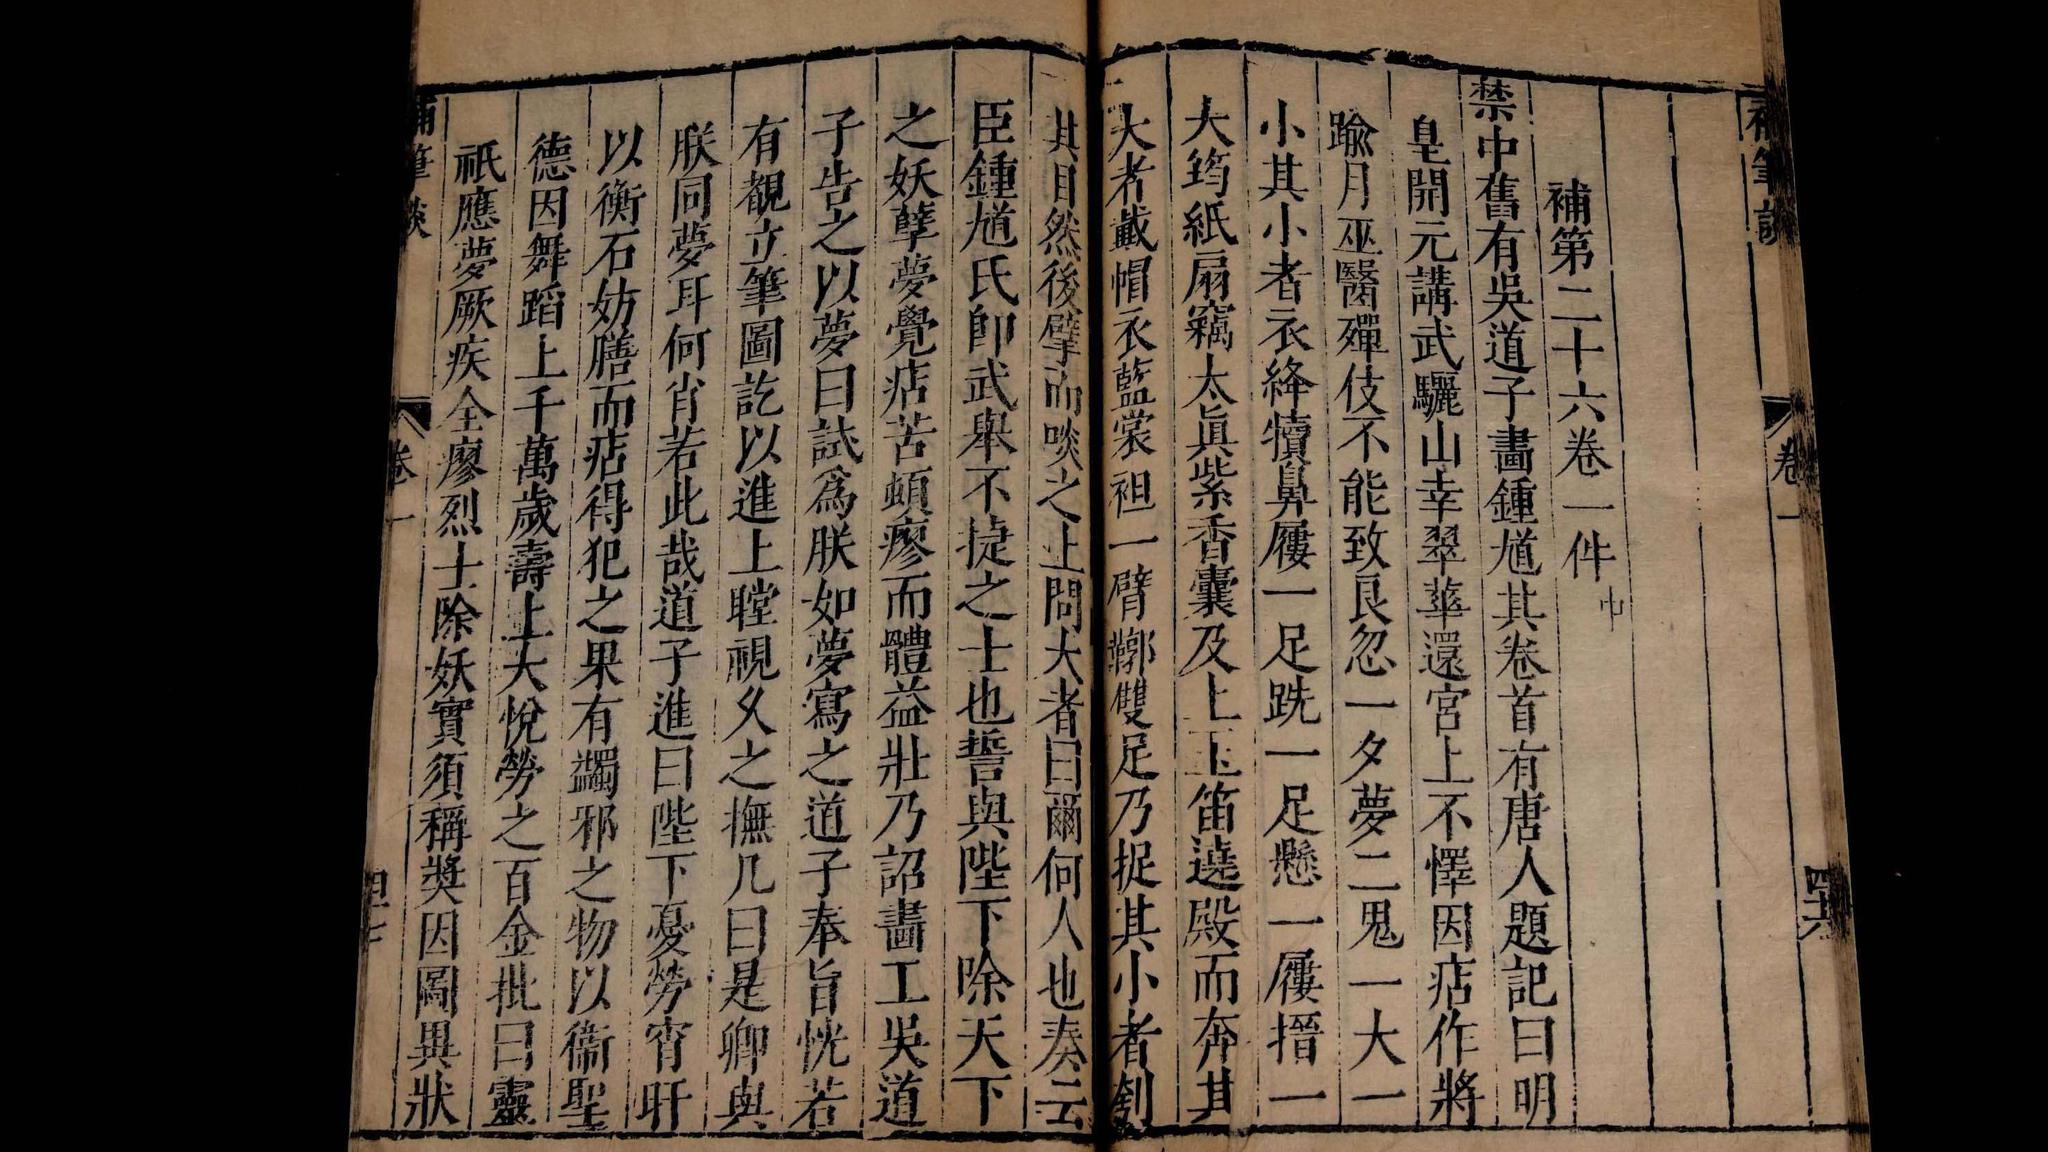 補筆談
卷一
四十六
補第二十六卷一件中
禁中舊有吳道子畫鍾馗其卷首有唐人題記曰明
皇開元講武驪山幸翠華還宮上不懌因痁作將
踰月巫醫殫伎不能致良忽一夕夢二鬼一大一
小其小者衣絳犢鼻屨一足跣一足懸一屨搢一
大筠紙扇竊太眞紫香囊及上玉笛遶殿而奔其
大者戴帽衣藍裳袒一臂鞹雙足乃捉其小者刳
其目然後擘而啖之上問大者曰爾何人也奏云
臣鍾馗氏卽武舉不捷之士也誓與陛下除天下
之妖孽夢覺痁苦頓瘳而體益壯乃詔畫工吳道
子告之以夢曰試爲朕如夢寫之道子奉旨恍若
有覩立筆圖訖以進上瞠視久之撫几曰是卿與
朕同夢耳何肖若此哉道子進曰陛下憂勞宵旰
以衡石妨膳而痁得犯之果有蠲邪之物以衞聖
德因舞蹈上千萬歲壽上大悅勞之百金批曰靈
祇應夢厥疾全瘳烈士除妖實須稱獎因圖異狀
補筆談
卷一
四七